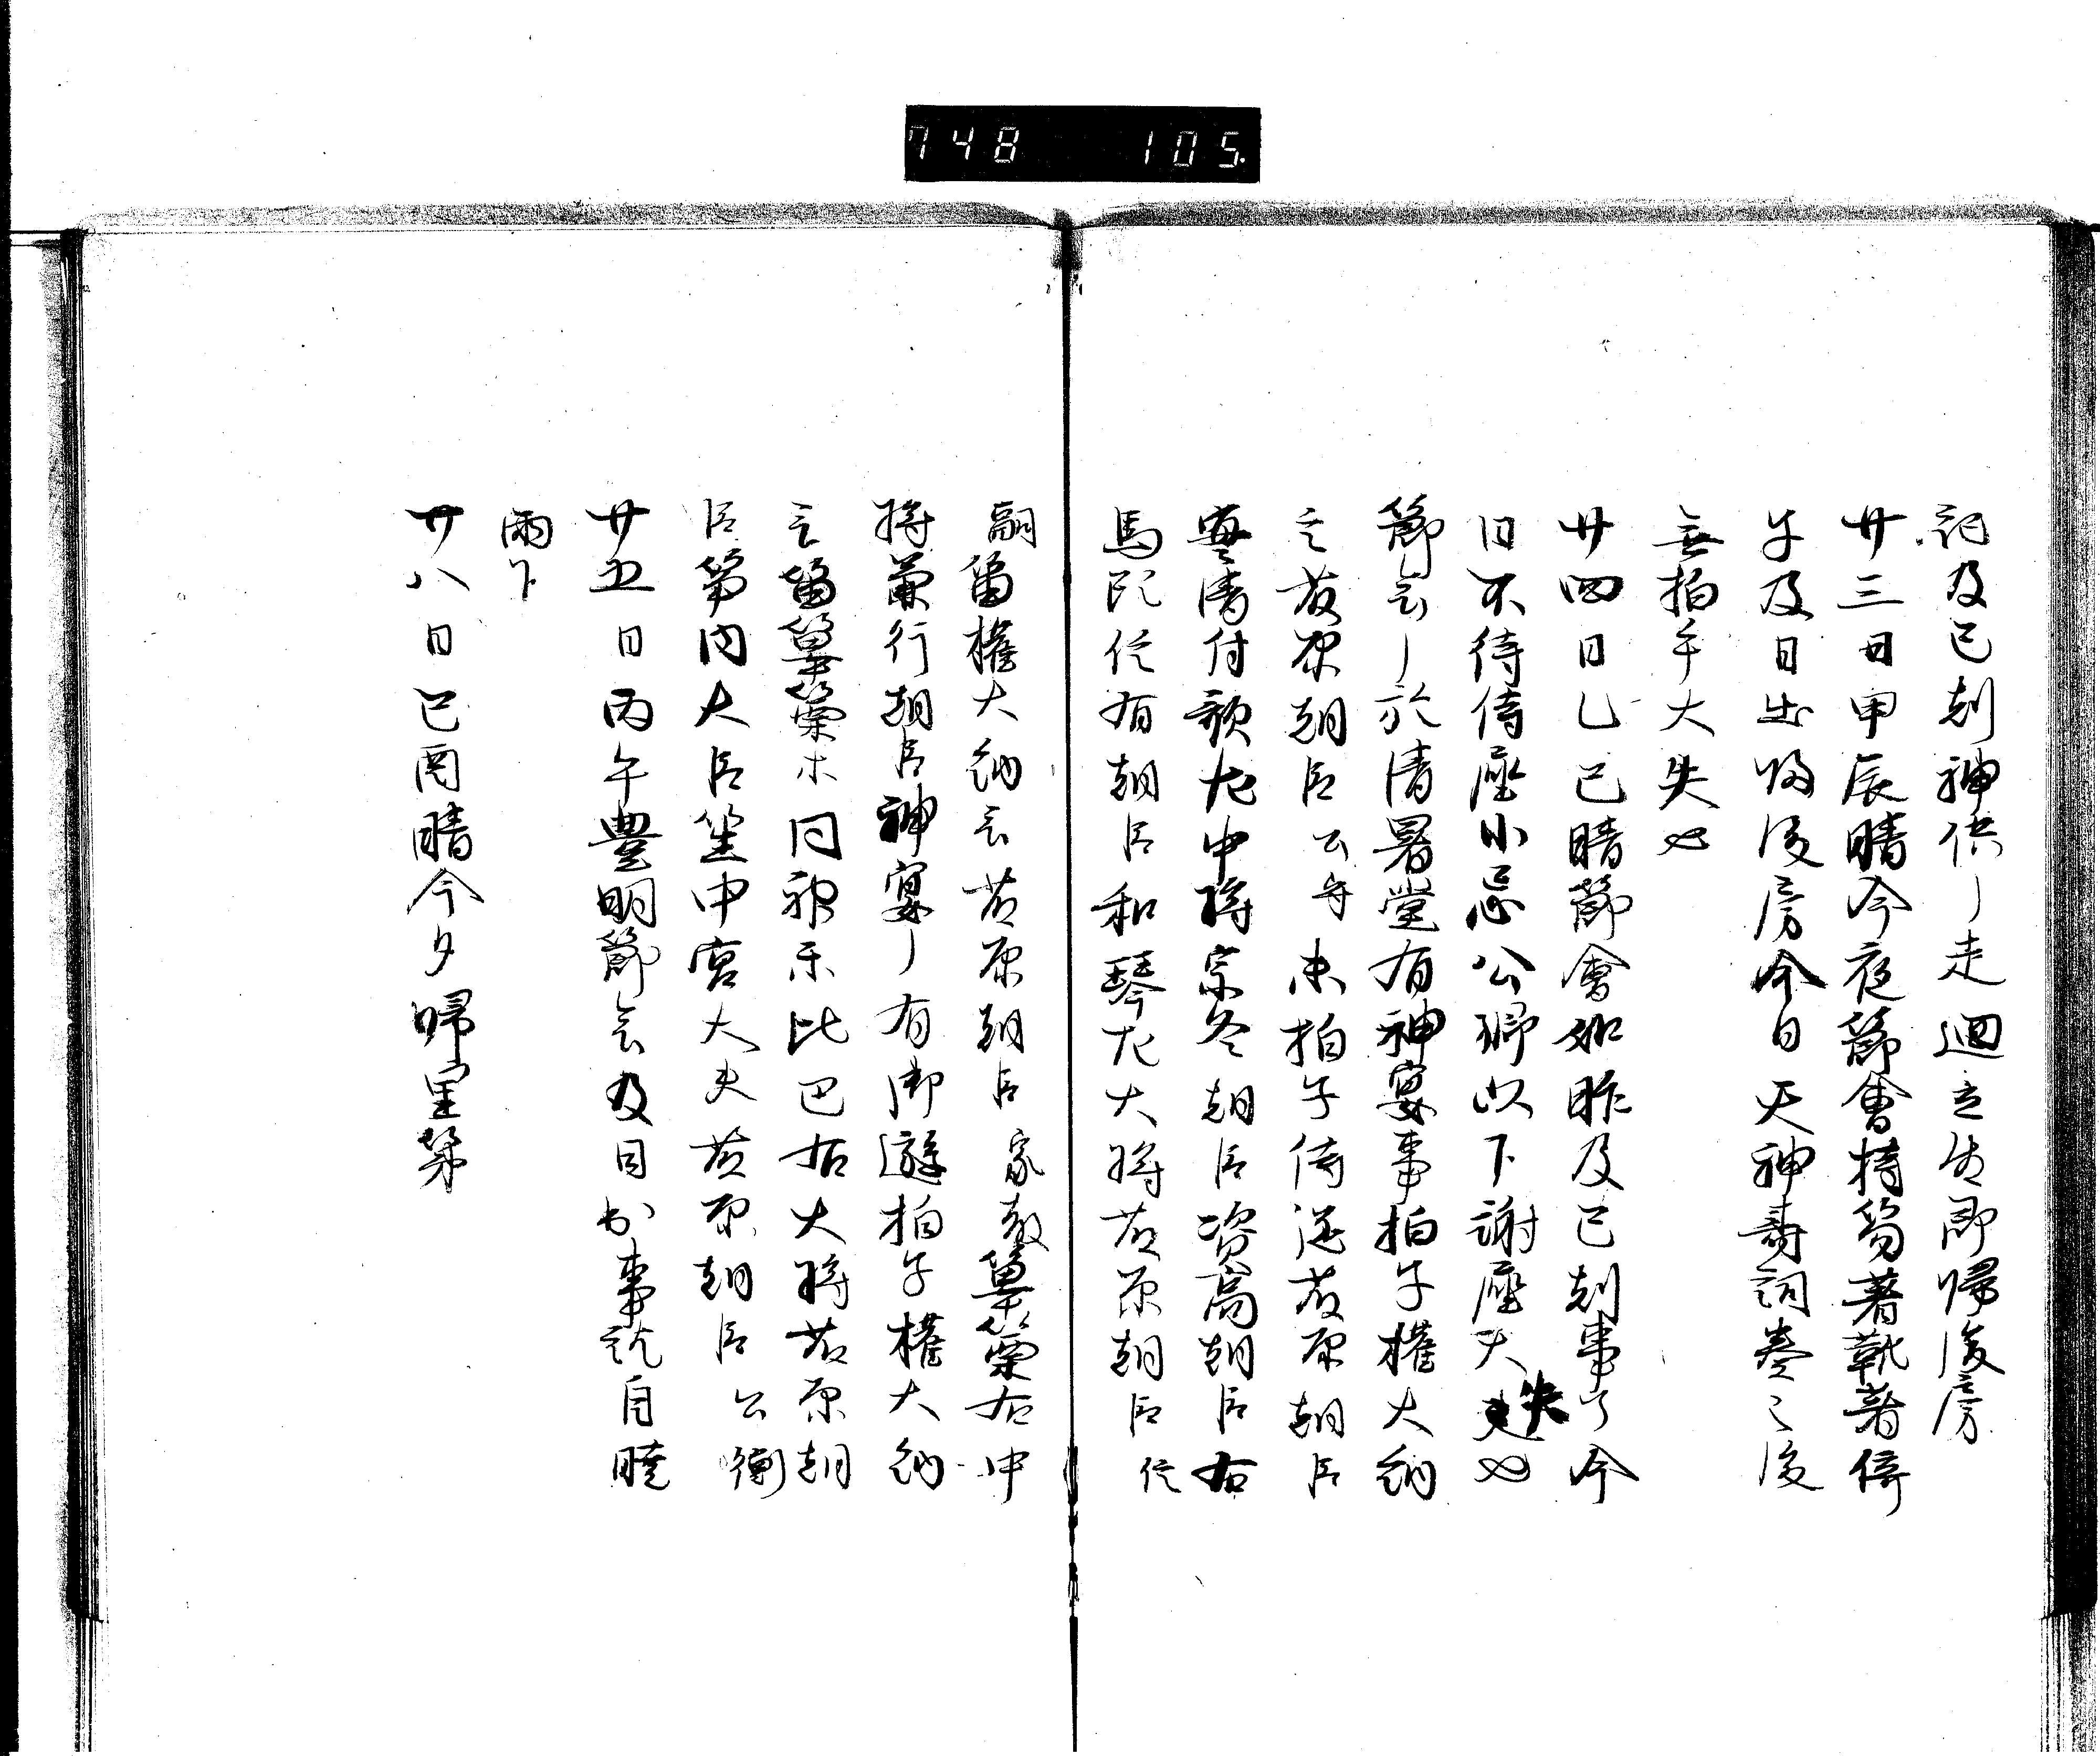 748 105
記及巳刻神供了走廻立生即帰後房
廿三日甲辰晴今夜節會持笏著靴著倚
子及日出帰後房今日天神壽詞奏之後
無拍手大失也
廿四日乙巳晴節會如昨及巳刻事了今
日不待侍座小忌公卿以下謝座大失也
節会了於清暑堂有神宴事拍子權大納
言藤原朝臣公守末拍子侍従藤原朝臣
實清付歌左中將宗冬朝臣資高朝臣右
馬頭信有朝臣和琴左大將藤原朝臣信
嗣笛權大納言藤原朝臣家教篳篥右中
將兼行朝臣神宴了有御遊拍子權大納
言笛篳篥木同神楽比巴右大將藤原朝
臣箏内大臣笙中宮大夫藤原朝臣公衡
廿五日丙午豊明節会及日出事訖自暁
雨下
廿八日己酉晴今夕帰里第